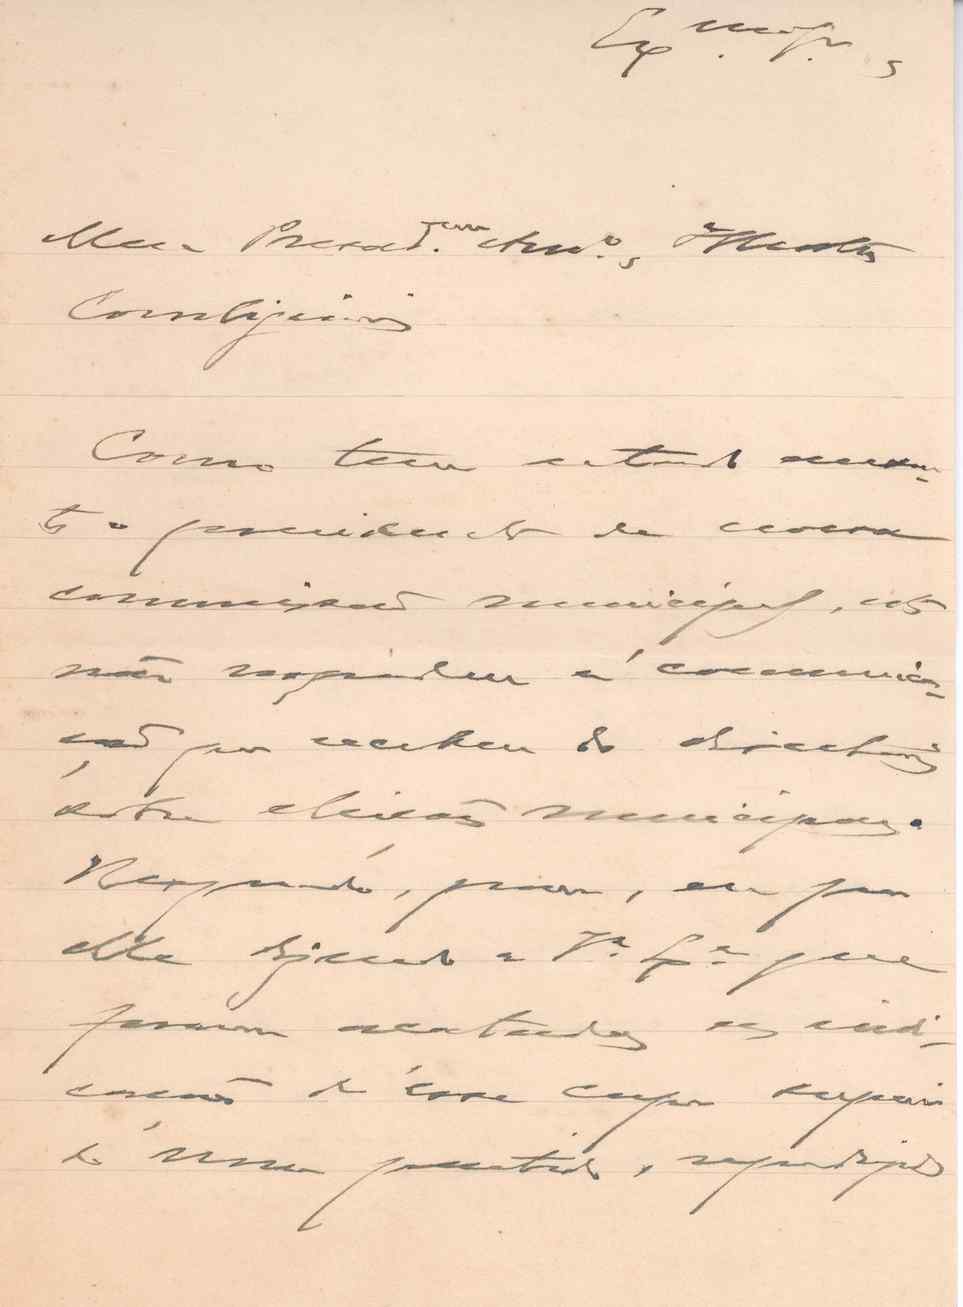 Ex.mo Sr.
Meu Presad.mo Am.o,
Correligionario
Como tem estado ausen-
te o presidente da nossa
commissão municipal, elle
não respondeu á communica-
ção que recebeu do directorio
sobre eleições municipaes.
Respondo, porem, eu por
elle dizendo a V.a Ex.a que
foram acatadas as indi-
cações d'esse corpo superior
do nosso partido,